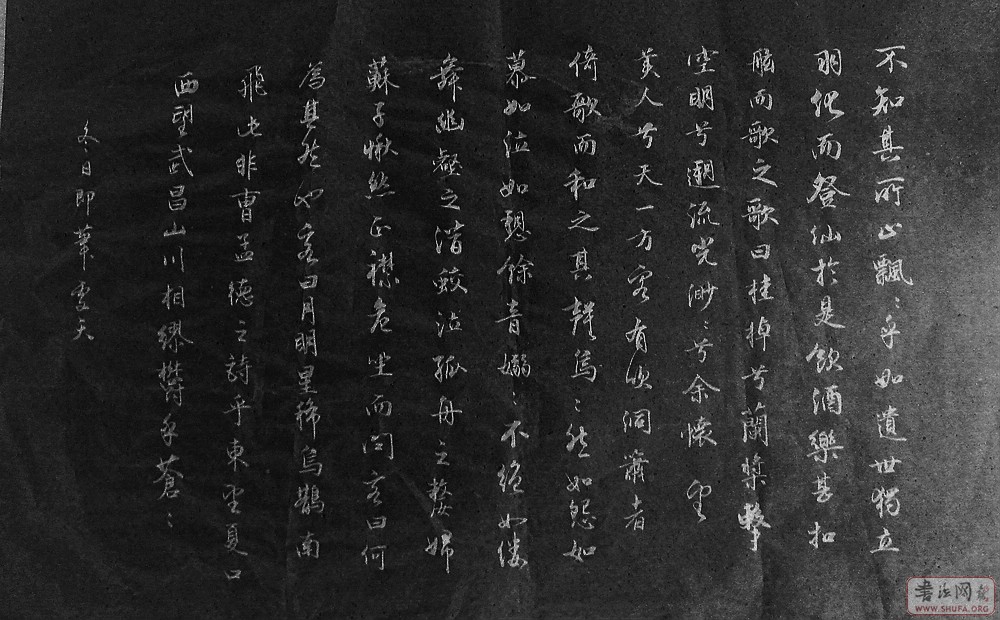 不知其所止飄〻乎如遺世獨立
羽化而登仙於是飲酒樂甚扣
舷而歌之歌曰桂掉兮蘭槳擊
空明兮遡流光渺〻兮余懷望
美人兮天一方客有吹洞簫者
倚歌而和之其聲烏〻然如怨如
慕如泣如愬餘音嫋〻不絕如縷
舞幽壑之潛蛟泣孤舟之嫠婦
蘇子愀然正襟危坐而問客曰何
為其然也客曰月明星稀烏鵲南
飛此非曹孟德之詩乎東望夏口
西望武昌山川相繆鬱乎蒼〻
冬日即筆
书法网报
WWW.SHUFA.ORG